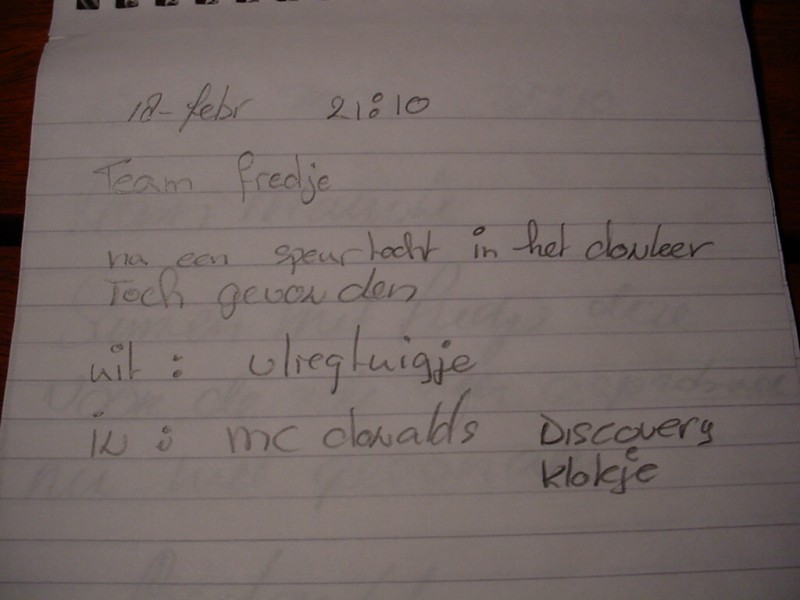 18-febr 21:10
Team fredje
na een speurtocht in het donker
Toch gevonden
uit : vliegtuigje
in : mc donalds Discovery
klokje